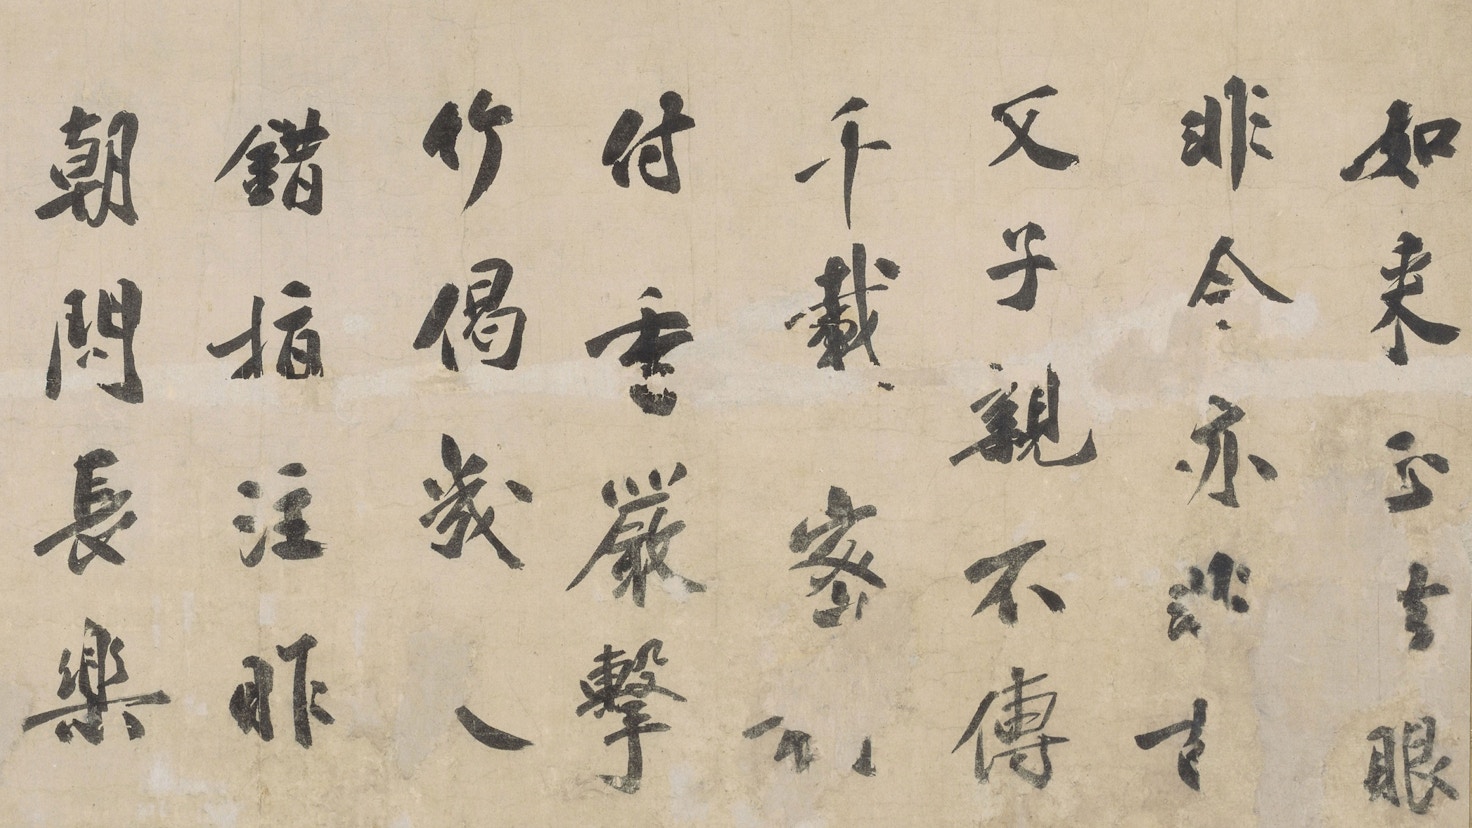 如来正法眼
非今亦非古
父子親不傳
千載密
付重嚴擊
竹偈幾人
錯指注昨
朝問長樂